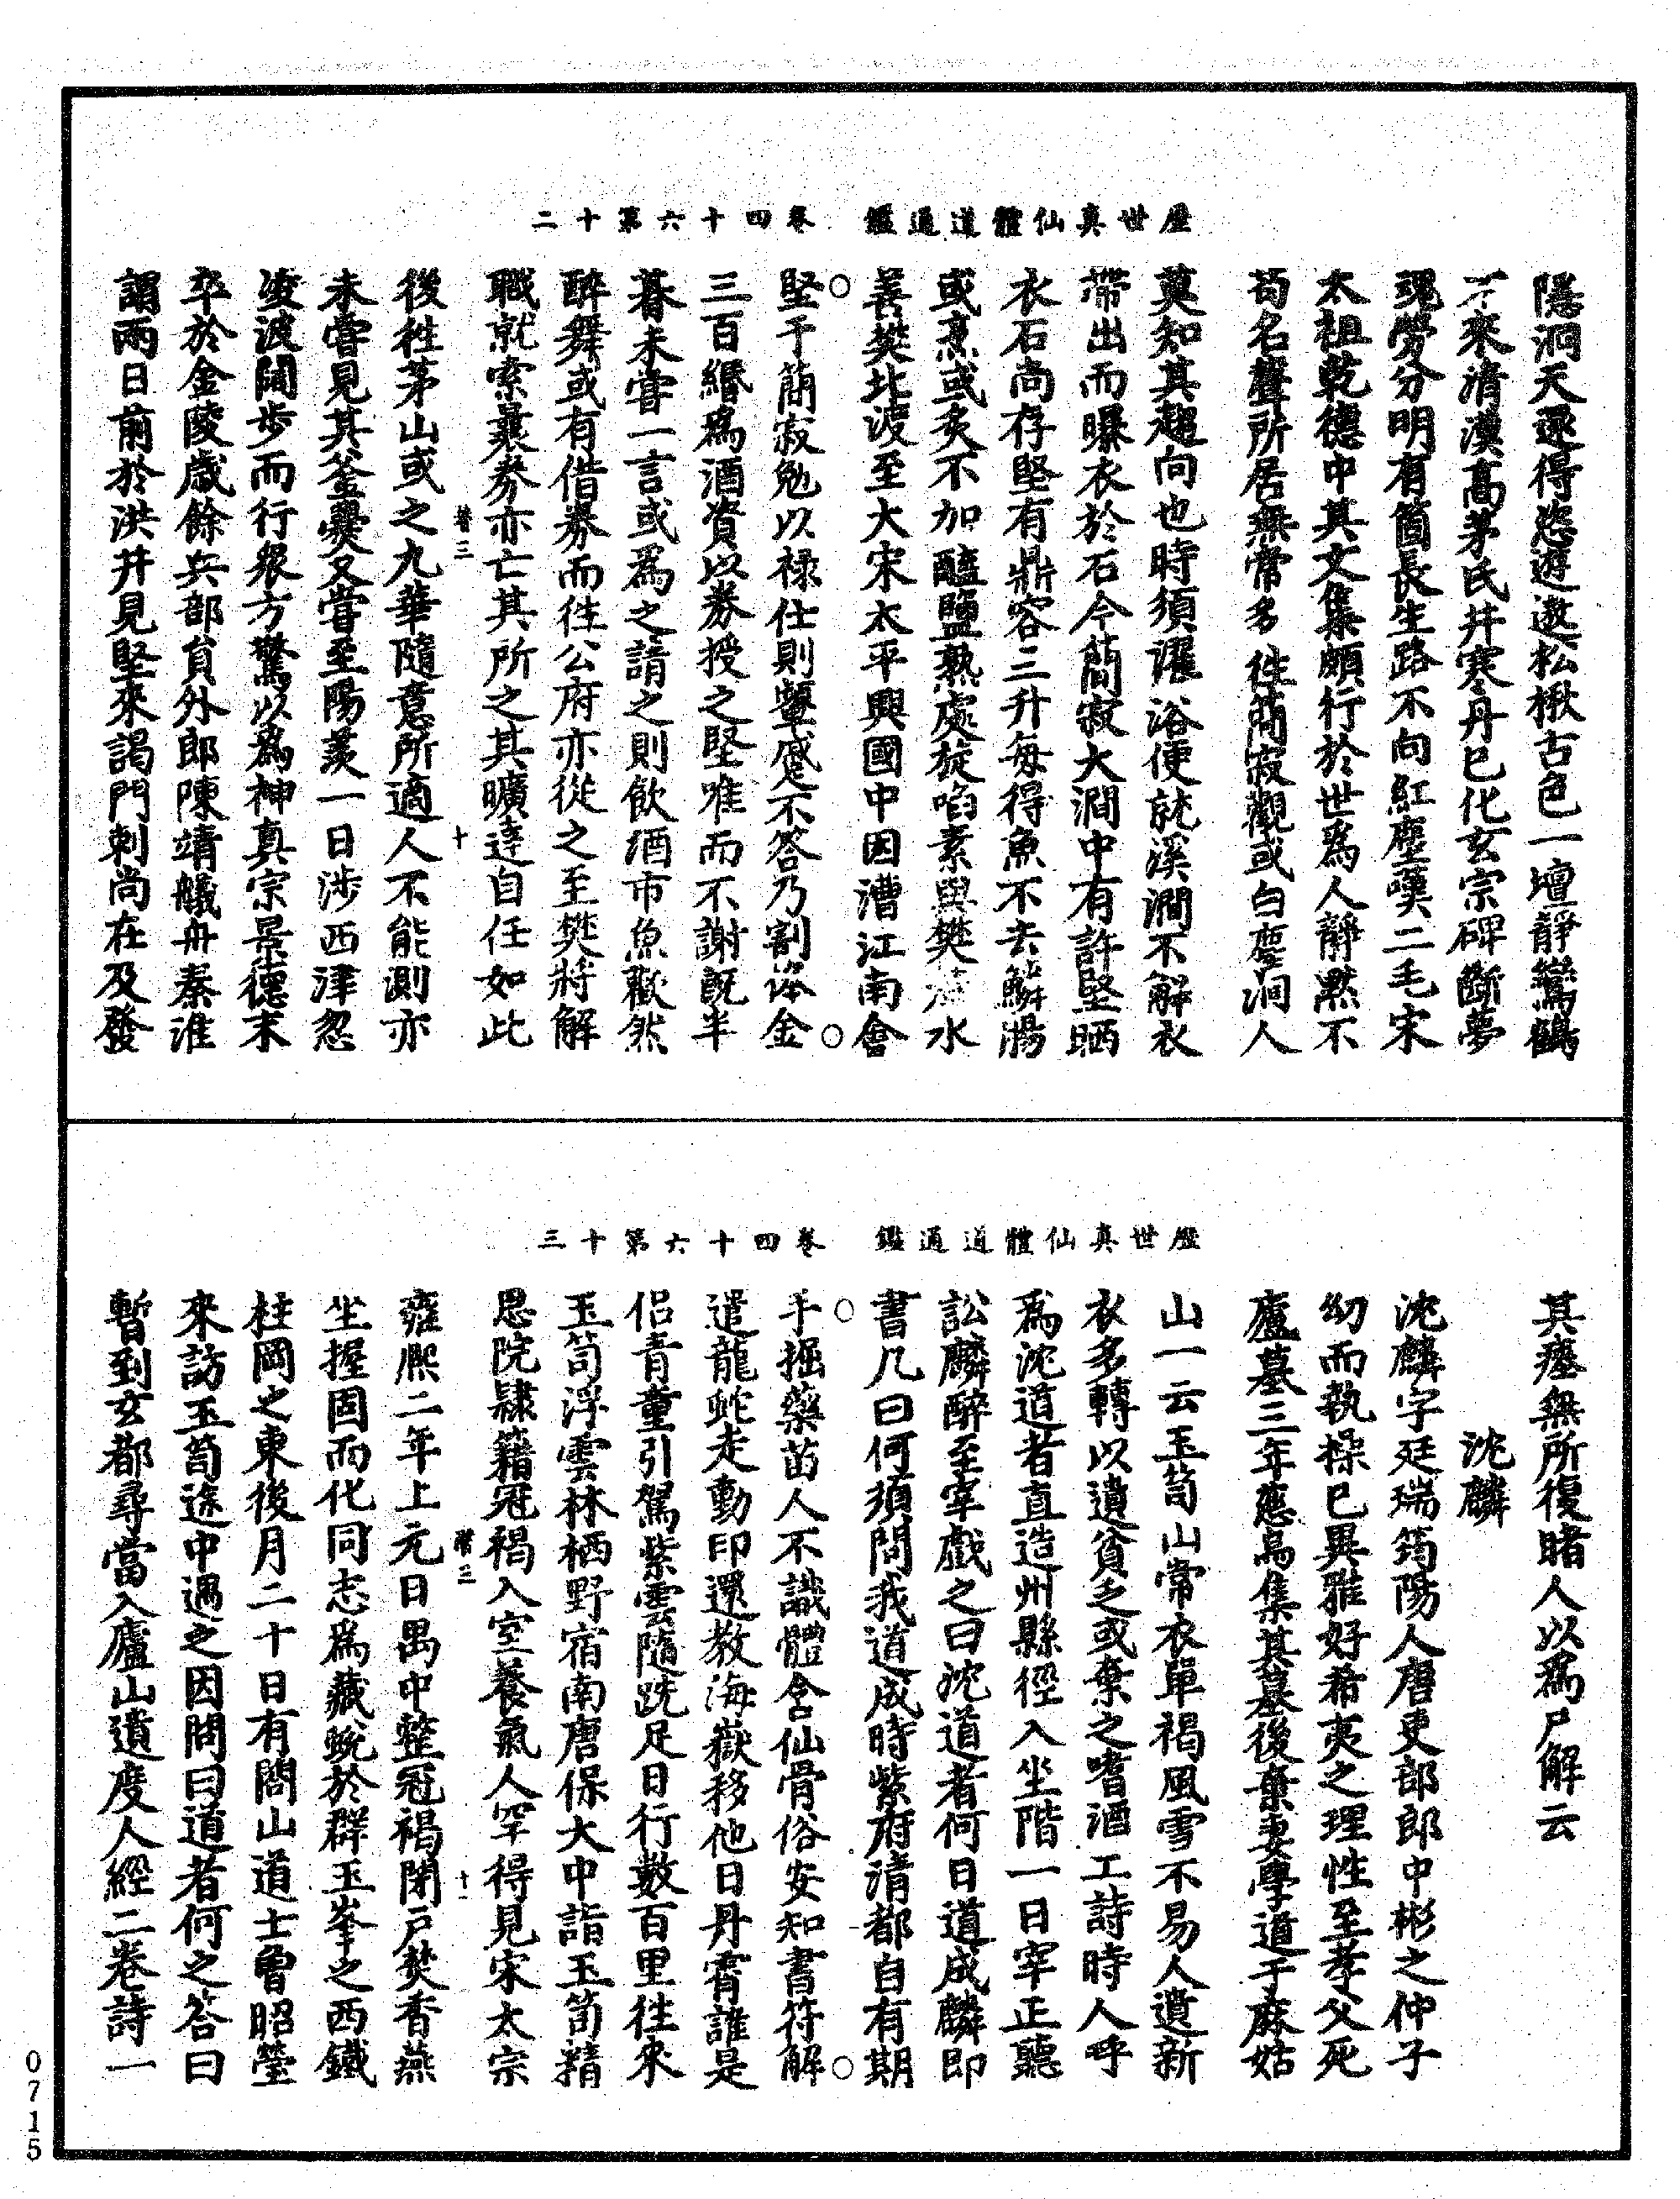 歷世真仙體道通鑑　卷四十六第十二
隱洞天遂得恣遊遨松楸古色一壇靜鸞鶴
不來清漢高茅氏井寒丹已化玄宗碑斷夢
魂勞分明有箇長生路不向紅塵嘆二毛宋
太祖乾德中其文集頗行於世爲人靜默不
苟名聲所居無常多往簡寂觀或白鹿洞人
莫知其趨向也時須濯浴便就溪澗不解衣
帶出而曝衣於石今簡寂大澗中有許堅晒
衣石尚存堅有鼎容三升每得魚不去鱗腸
或烹或炙不加醯鹽熟處旋啗素與樊水
善樊北渡至大宋太平興國中因漕江南會
堅于簡寂勉以禄仕則顰蹙不答乃割俸金
三百緡爲酒資以券授之堅唯而不謝既半
暮未嘗一言或爲之請之則飲酒市魚歡然
醉舞或有借券而往公府亦從之至樊將解
職就索曩券亦亡其所之其曠達自任如此
後往茅山或之九華隨意所適人不能測亦
未嘗見其釜爨又嘗至陽羨一日涉西津忽
凌波闊步而行衆方驚以爲神真宗景德末
卒於金陵歲餘兵部員外郎陳靖艤舟秦淮
謂兩日前於洪井見堅來謁門刺尚在及發
三
十
歷世真仙體道通鑑　卷四十六第十三
其瘞無所復睹人以爲尸解云
沈麟
沈麟字廷瑞筠陽人唐吏部郎中彬之仲子
幼而執操已異雅好希夷之理性至孝父死
廬墓三年慈烏集其墓後棄妻學道于麻姑
山一云玉笥山常衣單褐風雪不易人遺新
衣多轉以遺貧乏或棄之嗜酒工詩時人呼
爲沈道者直造州縣徑入坐階一日宰正聽
訟麟醉至宰戲之曰沈道者何日道成麟即
書几曰何須問我道成時紫府清都自有期
手掘藥苗人不識體含仙骨俗安知書符解
遣龍蛇走動印還教海嶽移他日丹霄誰是
侣青童引駕紫雲隨跣足日行數百里往來
玉笥浮雲林栖野宿南唐保大中詣玉笥精
思院隷籍冠褐入室養氣人罕得見宋太宗
雍熙二年上元日禺中整冠褐閉户焚香燕
坐握固而化同志爲藏蜕於群玉峯之西鐵
柱岡之東後月二十日有閤山道士曾昭瑩
來訪玉笥途中遇之因問曰道者何之答曰
暫到玄都尋當入廬山遺度人經二卷詩一
三
十一
0715